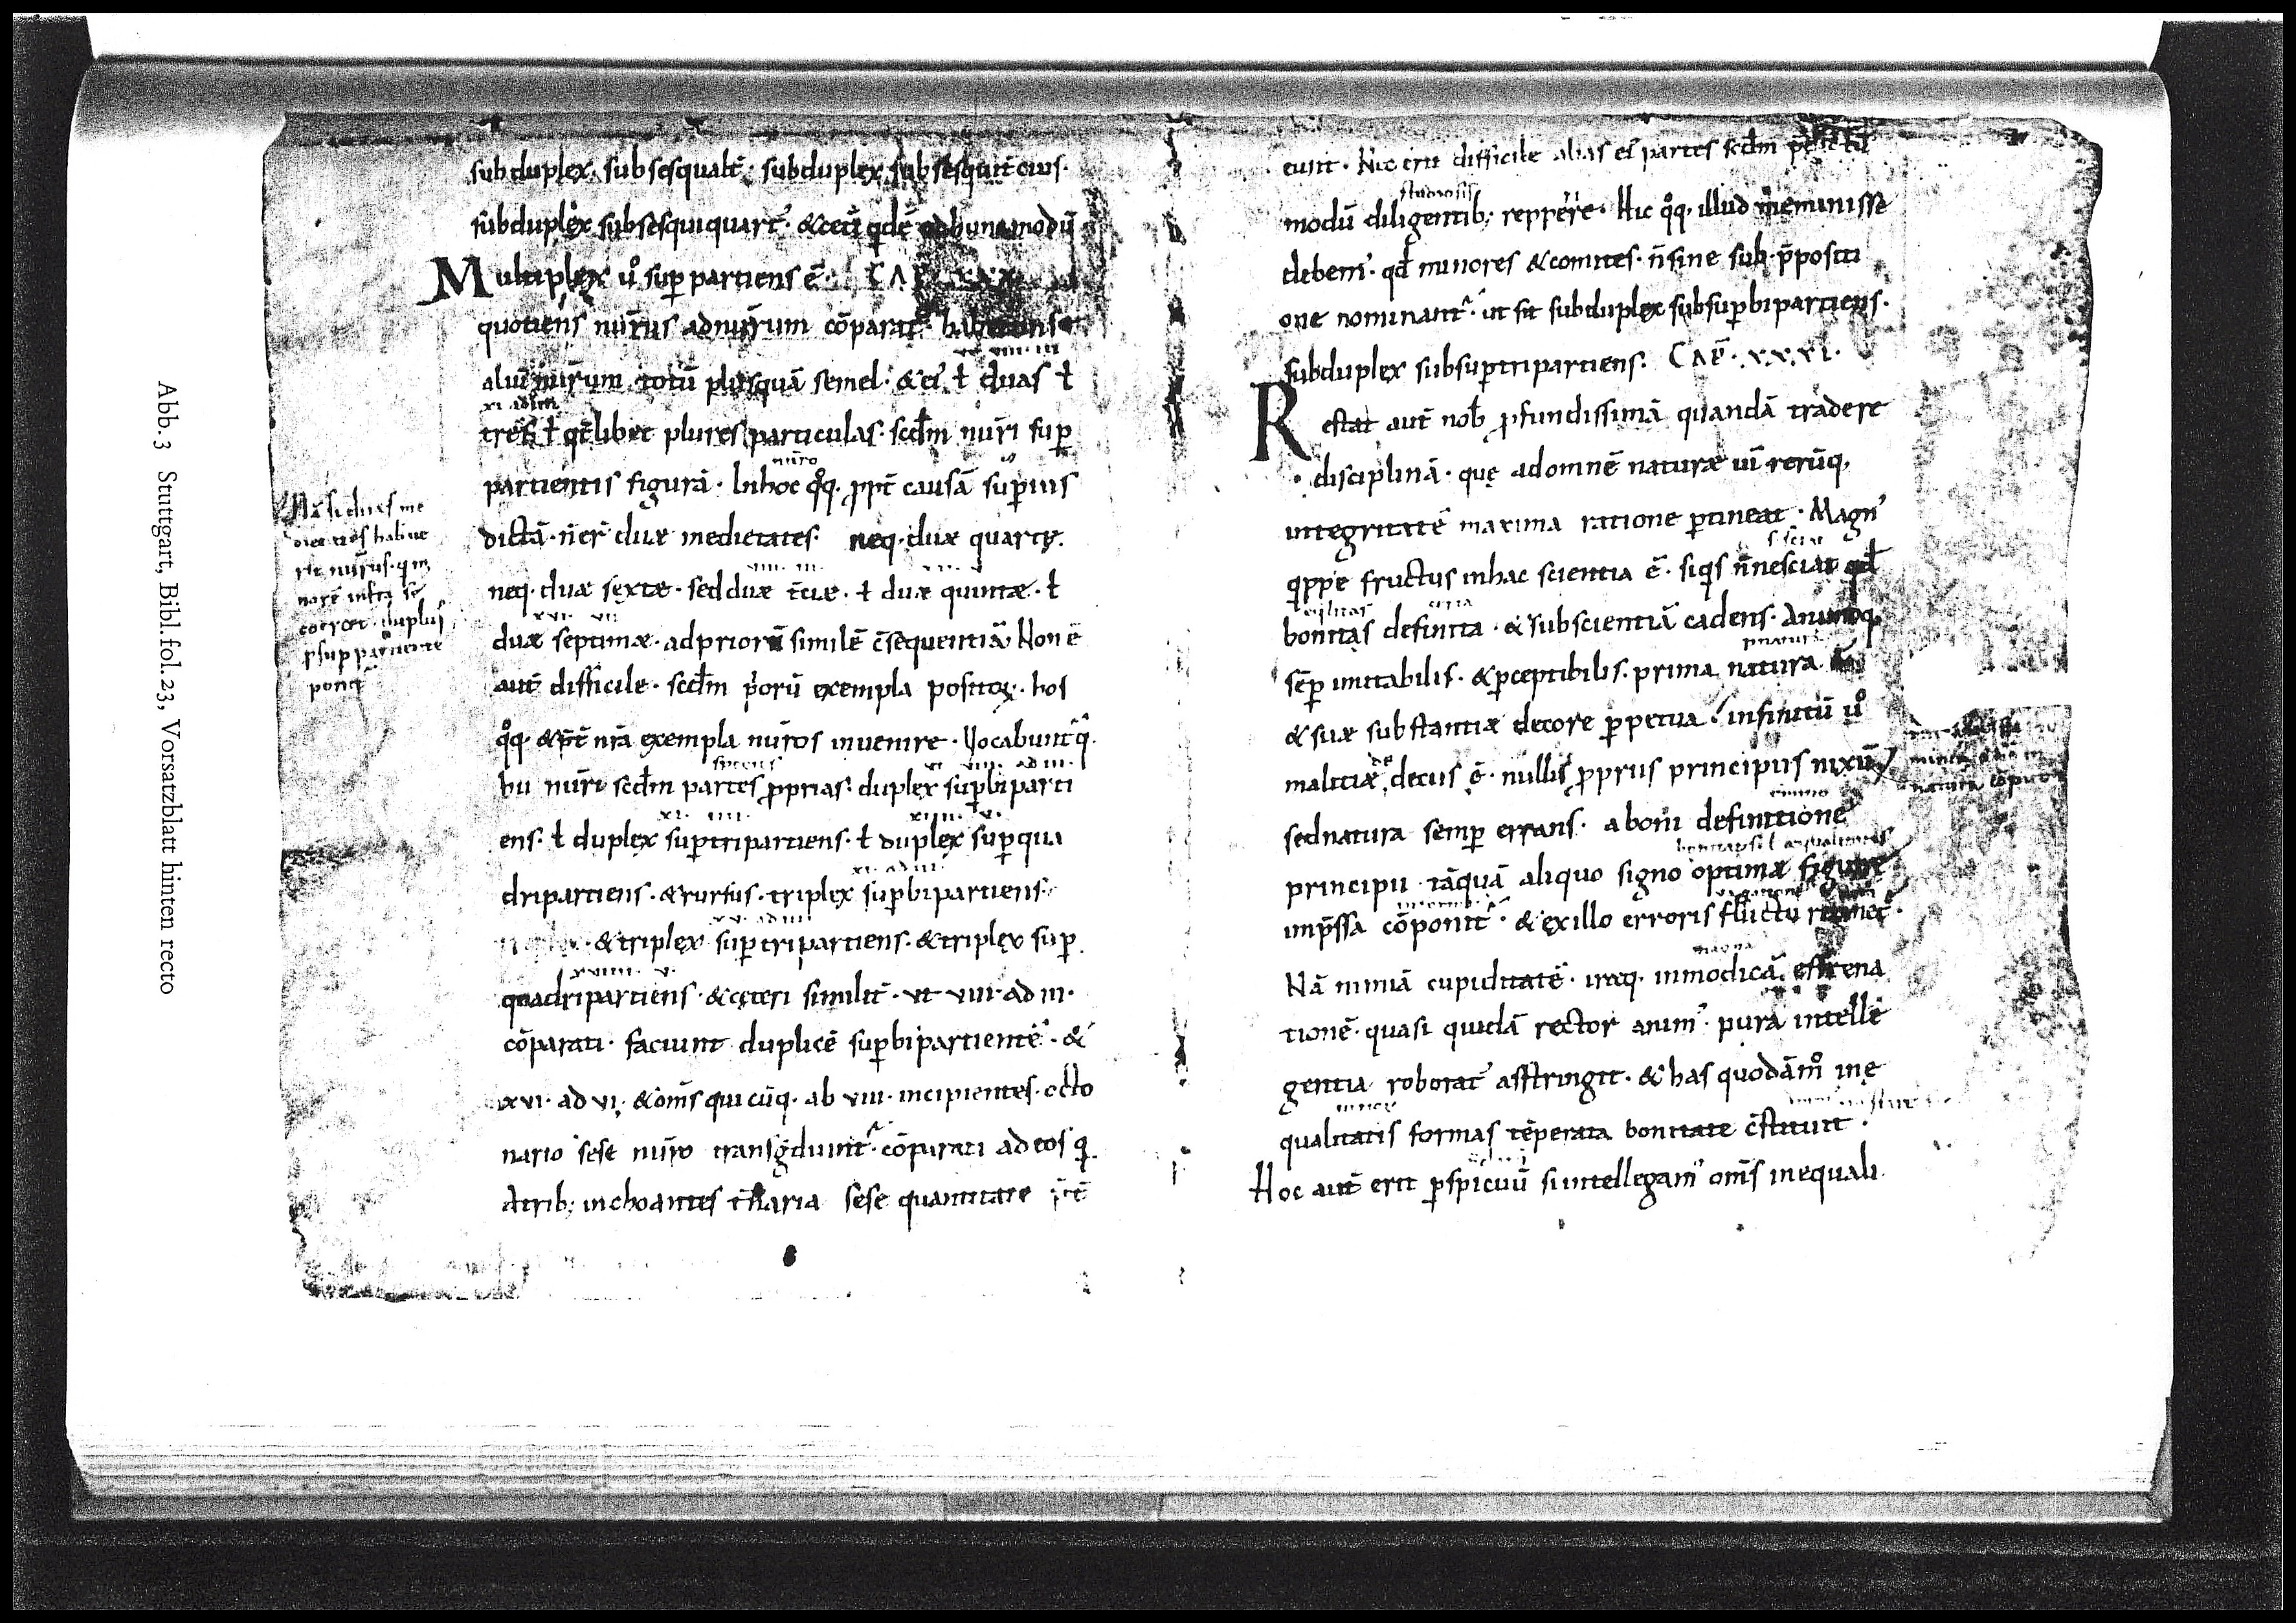 Abb. 3 Stuttgart, Bibl. fol. 23, Vorsatzblatt hinten recto
subduplex· subsesqualt̄· subduplex subsesquit̄cius·
subduplex subsesquiquart᷒· &cet̄i qͥdē adhunc modū
Multiplex ů sup̲partiens ē· CAP̄ XXX
quotiens nūrus adnūrum cōparat᷒·
aliū nūrum totū plusquā semel· &ei᷒ ƚ duas ƚ
VIII· III
XI ad III
tres ƚ qt̄libet plures particulas· scd̄m nūri sup̲
nūro
partientis figurā· Inhoc qͦq· ꝓpt̄ causā sup̲ius
dictā· n̄er̄ duæ medietates· neq· duæ quartę·
VIII· III·
neq· duæ sęxtæ· sed duæ t̄ciæ· ƚ duæ quintæ· ƚ
XVI· VII
duæ septimæ· adpriorū similē c̄sequentiā· Non ē
aut̄ difficile· scd̄m p̄orū exempla positoꝝ· hos
qͦq· &p̄t̄ nr̄a exempla nūros invenire· Vocabunt᷒q·
species VI VIII· ad III·
hii nūri scd̄m partes ꝓprias· duplex sup̲biparti
XI· IIII· XIIII· V·
ens· ƚ duplex sup̲tripartiens· ƚ duplex sup̲qua
XI· ad III·
dripartiens· &rursus· triplex sup̲bipartiens·
XV· ad IIII
&triplex sup̲tripartiens· &triplex sup̲
XVIIII· V·
quadripartiens· &cęteri similit̄· ut VIII· ad III·
cōparati· faciunt duplicē sup̲bipartientē· &
XVI· ad VI· &om̄s quicūq· ab VIII· incipientes· octo
nario sese nūro transg̊diunt᷒· cōparati adeos q·
Atrib; inchoantes t̄naria sese quantitate
Nā si duas me
dietates habue
rit nūrus· q m
norē infra se
coercet· duplus
sup̲ partiente
ponet᷒
eunt· Nec erit difficile alias ei᷒ partes scd̄m
studiosis
modū diligentib; repperire· Hic qͦq· illud meminisse
debem᷒· qd̄ minores &comites· n̄sine sub· p̄positi
one nominant᷒· ut sit subduplex subsup̲bipartiens·
subduplex subsup̲tripartiens· CAP̄· XXXI·
Restat aut̄ nob̄ ꝓfundissimā quandā tradere
disciplinā· quę adomnē naturæ uī rerūq·
integritatē maxima ratione p̲tineat· Magn᷒
qͥppe fructus inhac scientia ē· siqͥs n̄nesciat qd̄
bonitas definita· &subscientiā cadens· Animoq·
sēp̲ imitabilis· &p̲ceptibilis· prima natura
&suæ substantiæ decore p̲petua· infinitū ů
malitiæ decus ē· nullis ꝓpriis principiis nixū
sednatura semp̲ errans· aboni definitione
principii tāquā aliquo signo optimæ figuræ
imp̄ssa cōponit᷒· &exillo erroris fluctu
magna
Nā nimiā cupiditatē· iraq· inmodicā effrena
tionē· quasi quidā rector anim᷒· pura intelle
gentia roborat᷒ asstringit· &has quodāmͦ ine
qualitatis formas tēperata bonitate c̄stituit·
Hoc aut̄ erit p̲spicuū siintellegam᷒ om̄s inequali